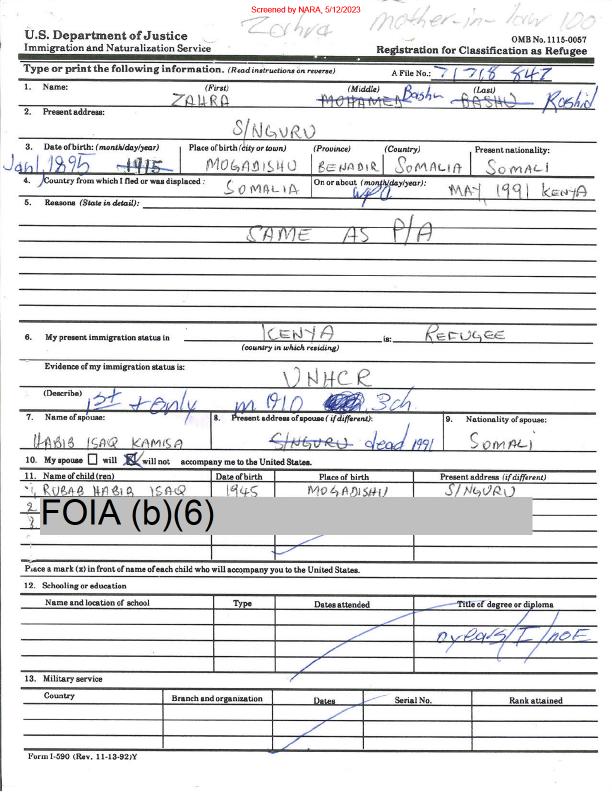 Screened by NARA, 5/12/2023
Zahra mother-in-law 100
U.S. Department of Justice
Immigration and Naturalization Service
OMB No. 1115-0057
Registration for Classification as Refugee
Type or print the following information. (Read instructions on reverse)
A File No.: 71 718 842
1. Name: (First) (Middle) (Last)
ZAHRA MOHAMED Bashu BASHU Rashid
2. Present address:
S/NGURU
3. Date of birth: (month/day/year) Place of birth (city or town) (Province) (Country) Present nationality:
Jan 1, 1895 1915 MOGADISHU BENADIR SOMALIA SOMALI
4. Country from which I fled or was displaced: SOMALIA On or about (month/day/year): MAY, 1991 KENYA
5. Reasons (State in detail):
SAME AS P/A
6. My present immigration status in KENYA is: REFUGEE
(country in which residing)
Evidence of my immigration status is:
UNHCR
(Describe) 1st + only m 1910 3ch
7. Name of spouse: 8. Present address of spouse (if different): 9. Nationality of spouse:
HABIB ISAQ KAMISA S/NGURU dead 1991 SOMALI
10. My spouse will will not accompany me to the United States.
11. Name of child (ren) Date of birth Place of birth Present address (if different)
1, RUBAB HABIB ISAQ 1945 MOGADISHU S/NGURU
2
FOIA (b)(6)
3
Place a mark (x) in front of name of each child who will accompany you to the United States.
12. Schooling or education
Name and location of school Type Dates attended Title of degree or diploma
0 years / I / not E
13. Military service
Country Branch and organization Dates Serial No. Rank attained
Form I-590 (Rev. 11-13-92)Y